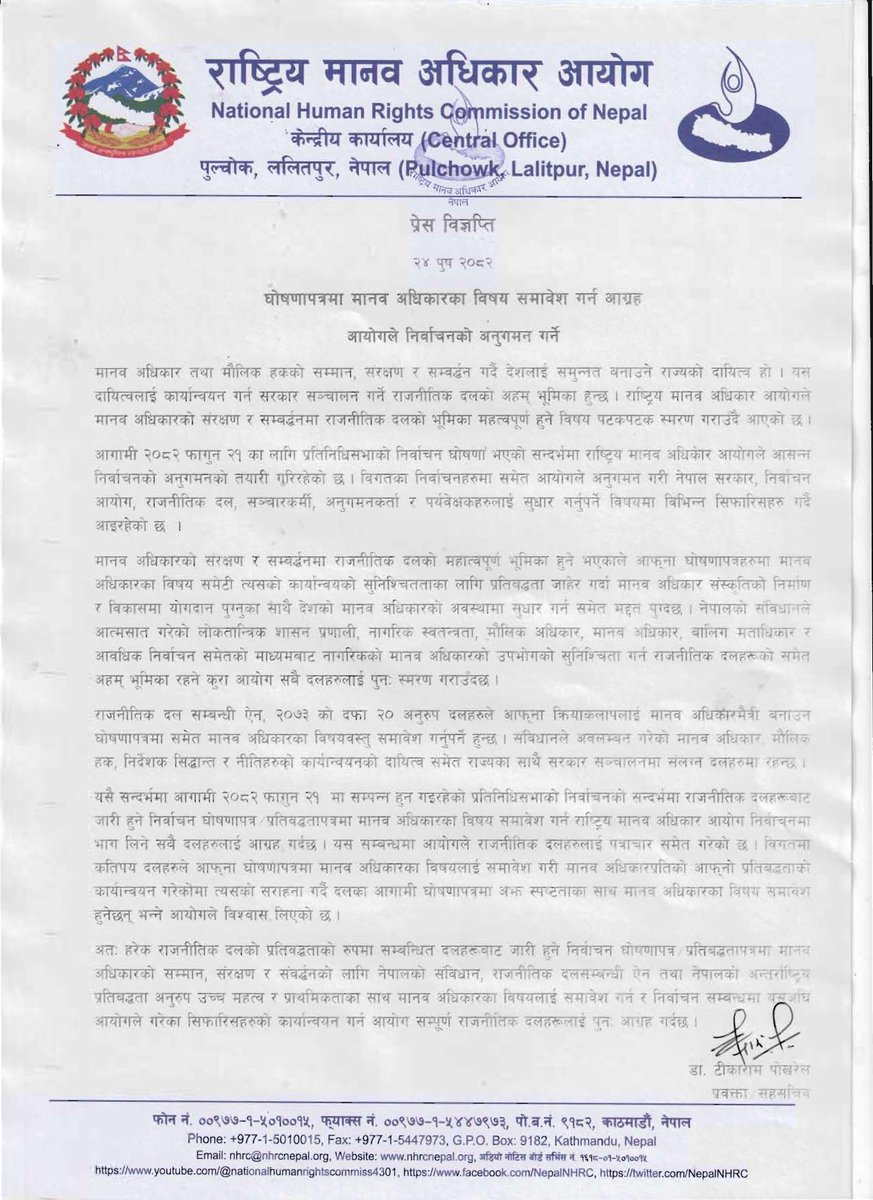 राष्ट्रिय मानव अधिकार आयोग
National Human Rights Commission of Nepal
केन्द्रीय कार्यालय (Central Office)
पुल्चोक, ललितपुर, नेपाल (Pulchowk, Lalitpur, Nepal)
राष्ट्रिय मानव अधिकार आयोग
नेपाल
प्रेस विज्ञप्ति
२४ पुष २०८२
घोषणापत्रमा मानव अधिकारका विषय समावेश गर्न आग्रह
आयोगले निर्वाचनको अनुगमन गर्ने
मानव अधिकार तथा मौलिक हकको सम्मान, संरक्षण र सम्वर्द्धन गर्दै देशलाई समुन्नत बनाउने राज्यको दायित्व हो । यस
दायित्वलाई कार्यान्वयन गर्न सरकार सञ्चालन गर्ने राजनीतिक दलको अहम् भूमिका हुन्छ । राष्ट्रिय मानव अधिकार आयोगले
मानव अधिकारको संरक्षण र सम्वर्द्धनमा राजनीतिक दलको भूमिका महत्वपूर्ण हुने विषय पटकपटक स्मरण गराउँदै आएको छ ।
आगामी २०८२ फागुन २१ का लागि प्रतिनिधिसभाको निर्वाचन घोषणा भएको सन्दर्भमा राष्ट्रिय मानव अधिकार आयोगले आसन्न
निर्वाचनको अनुगमनको तयारी गरिरहेको छ । विगतका निर्वाचनहरुमा समेत आयोगले अनुगमन गरी नेपाल सरकार, निर्वाचन
आयोग, राजनीतिक दल, सञ्चारकर्मी, अनुगमनकर्ता र पर्यवेक्षकहरुलाई सुधार गर्नुपर्ने विषयमा विभिन्न सिफारिसहरु गर्दै
आइरहेको छ ।
मानव अधिकारको संरक्षण र सम्वर्द्धनमा राजनीतिक दलको महात्वपूर्ण भूमिका हुने भएकाले आफ्ना घोषणापत्रहरुमा मानव
अधिकारका विषय समेटी त्यसको कार्यान्वयको सुनिश्चितताका लागि प्रतिबद्धता जाहेर गर्दा मानव अधिकार संस्कृतिको निर्माण
र विकासमा योगदान पुग्नुका साथै देशको मानव अधिकारको अवस्थामा सुधार गर्न समेत मद्दत पुग्दछ । नेपालको संविधानले
आत्मसात गरेको लोकतान्त्रिक शासन प्रणाली, नागरिक स्वतन्त्रता, मौलिक अधिकार, मानव अधिकार, बालिग मताधिकार र
आवधिक निर्वाचन समेतको माध्यमबाट नागरिकको मानव अधिकारको उपभोगको सुनिश्चिता गर्न राजनीतिक दलहरूको समेत
अहम् भूमिका रहने कुरा आयोग सबै दलहरुलाई पुनः स्मरण गराउँदछ ।
राजनीतिक दल सम्बन्धी ऐन, २०७३ को दफा २० अनुरुप दलहरुले आफ्ना क्रियाकलापलाई मानव अधिकारमैत्री बनाउन
घोषणापत्रमा समेत मानव अधिकारका विषयवस्तु समावेश गर्नुपर्ने हुन्छ । संविधानले अवलम्बन गरेको मानव अधिकार, मौलिक
हक, निर्देशक सिद्धान्त र नीतिहरुको कार्यान्वयनको दायित्व समेत राज्यका साथै सरकार सञ्चालनमा संलग्न दलहरुमा रहन्छ ।
यसै सन्दर्भमा आगामी २०८२ फागुन २१ मा सम्पन्न हुन गइरहेको प्रतिनिधिसभाको निर्वाचनको सन्दर्भमा राजनीतिक दलहरूबाट
जारी हुने निर्वाचन घोषणापत्र/प्रतिबद्धतापत्रमा मानव अधिकारका विषय समावेश गर्न राष्ट्रिय मानव अधिकार आयोग निर्वाचनमा
भाग लिने सबै दलहरुलाई आग्रह गर्दछ । यस सम्बन्धमा आयोगले राजनीतिक दलहरुलाई पत्राचार समेत गरेको छ । विगतमा
कतिपय दलहरुले आफ्ना घोषणापत्रमा मानव अधिकारका विषयलाई समावेश गरी मानव अधिकारप्रतिको आफ्नो प्रतिबद्धताको
कार्यान्वयन गरेकोमा त्यसको सराहना गर्दै दलका आगामी घोषणापत्रमा अझ स्पष्टताका साथ मानव अधिकारका विषय समावेश
हुनेछन् भन्ने आयोगले विश्वास लिएको छ ।
अतः हरेक राजनीतिक दलको प्रतिवद्धताको रुपमा सम्बन्धित दलहरूबाट जारी हुने निर्वाचन घोषणापत्र/प्रतिबद्धतापत्रमा मानव
अधिकारको सम्मान, संरक्षण र संवर्द्धनको लागि नेपालको संविधान, राजनीतिक दलसम्बन्धी ऐन तथा नेपालको अन्तर्राष्ट्रिय
प्रतिबद्धता अनुरुप उच्च महत्व र प्राथमिकताका साथ मानव अधिकारका विषयलाई समावेश गर्न र निर्वाचन सम्बन्धमा यसअघि
आयोगले गरेका सिफारिसहरुको कार्यान्वयन गर्न आयोग सम्पूर्ण राजनीतिक दलहरूलाई पुनः आग्रह गर्दछ ।
डा. टीकाराम पोखरेल
प्रवक्ता/सहसचिव
फोन नं. ००९७७-१-५०१००१५, फ्याक्स नं. ००९७७-१-५४४७९७३, पो.ब.नं. ९१८२, काठमाडौं, नेपाल
Phone: +977-1-5010015, Fax: +977-1-5447973, G.P.O. Box: 9182, Kathmandu, Nepal
Email: nhrc@nhrcnepal.org, Website: www.nhrcnepal.org, अडियो नोटिस बोर्ड सर्भिस नं. १६१८-०१-५०१००१५
https://www.youtube.com/@nationalhumanrightscommiss4301, https://www.facebook.com/NepalNHRC, https://twitter.com/NepalNHRC